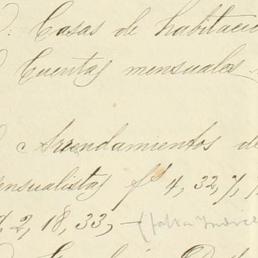 Casas de habitacio
Cuentas mensuales
Arrendamientos de
ensualistas fs 4, 32, 7, 1
2, 18, 33, - (falta Indice